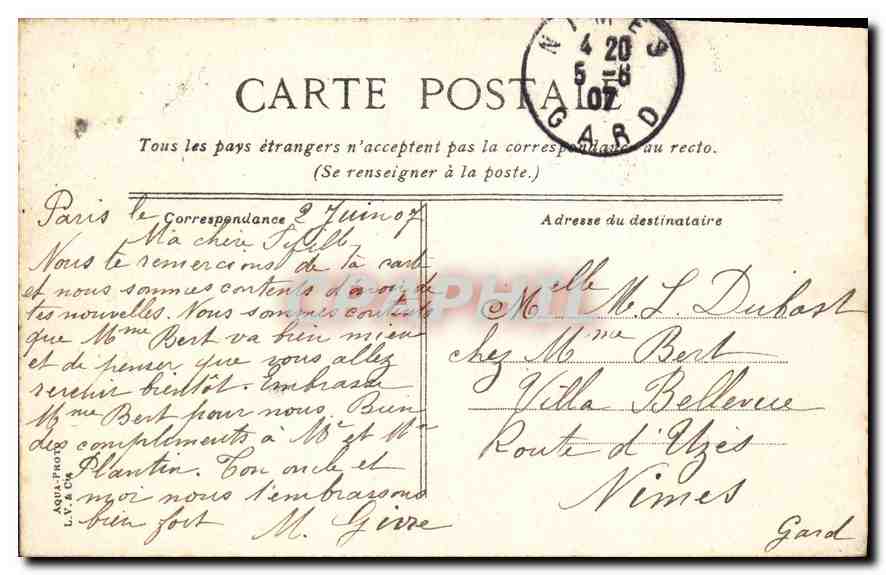 NIMES
4 20
5 -6
07
GARD
CARTE POSTALE
Tous les pays étrangers n'acceptent pas la correspondance au recto.
(Se renseigner à la poste.)
Correspondance
Adresse du destinataire
Paris le 2 Juin 07
Ma chère
Nous te remercions de ta carte
et nous sommes contents d'avoir de
tes nouvelles. Nous sommes contents
que Mme Bert va bien mieu
et de penser que vous allez
revenir bientôt. Embrasse
Mme Bert pour nous. Bien
des compliments à Mr et Mme
Plantin. Ton oncle et
moi nous t'embrassons
bien fort
M. Givre
Melle M. L. Dubost
chez Mme Bert
Villa Bellevue
Route d'Uzès
Nimes
Gard
AQUA-PHOTO
L.V. & Cie
DELCAMPHIL